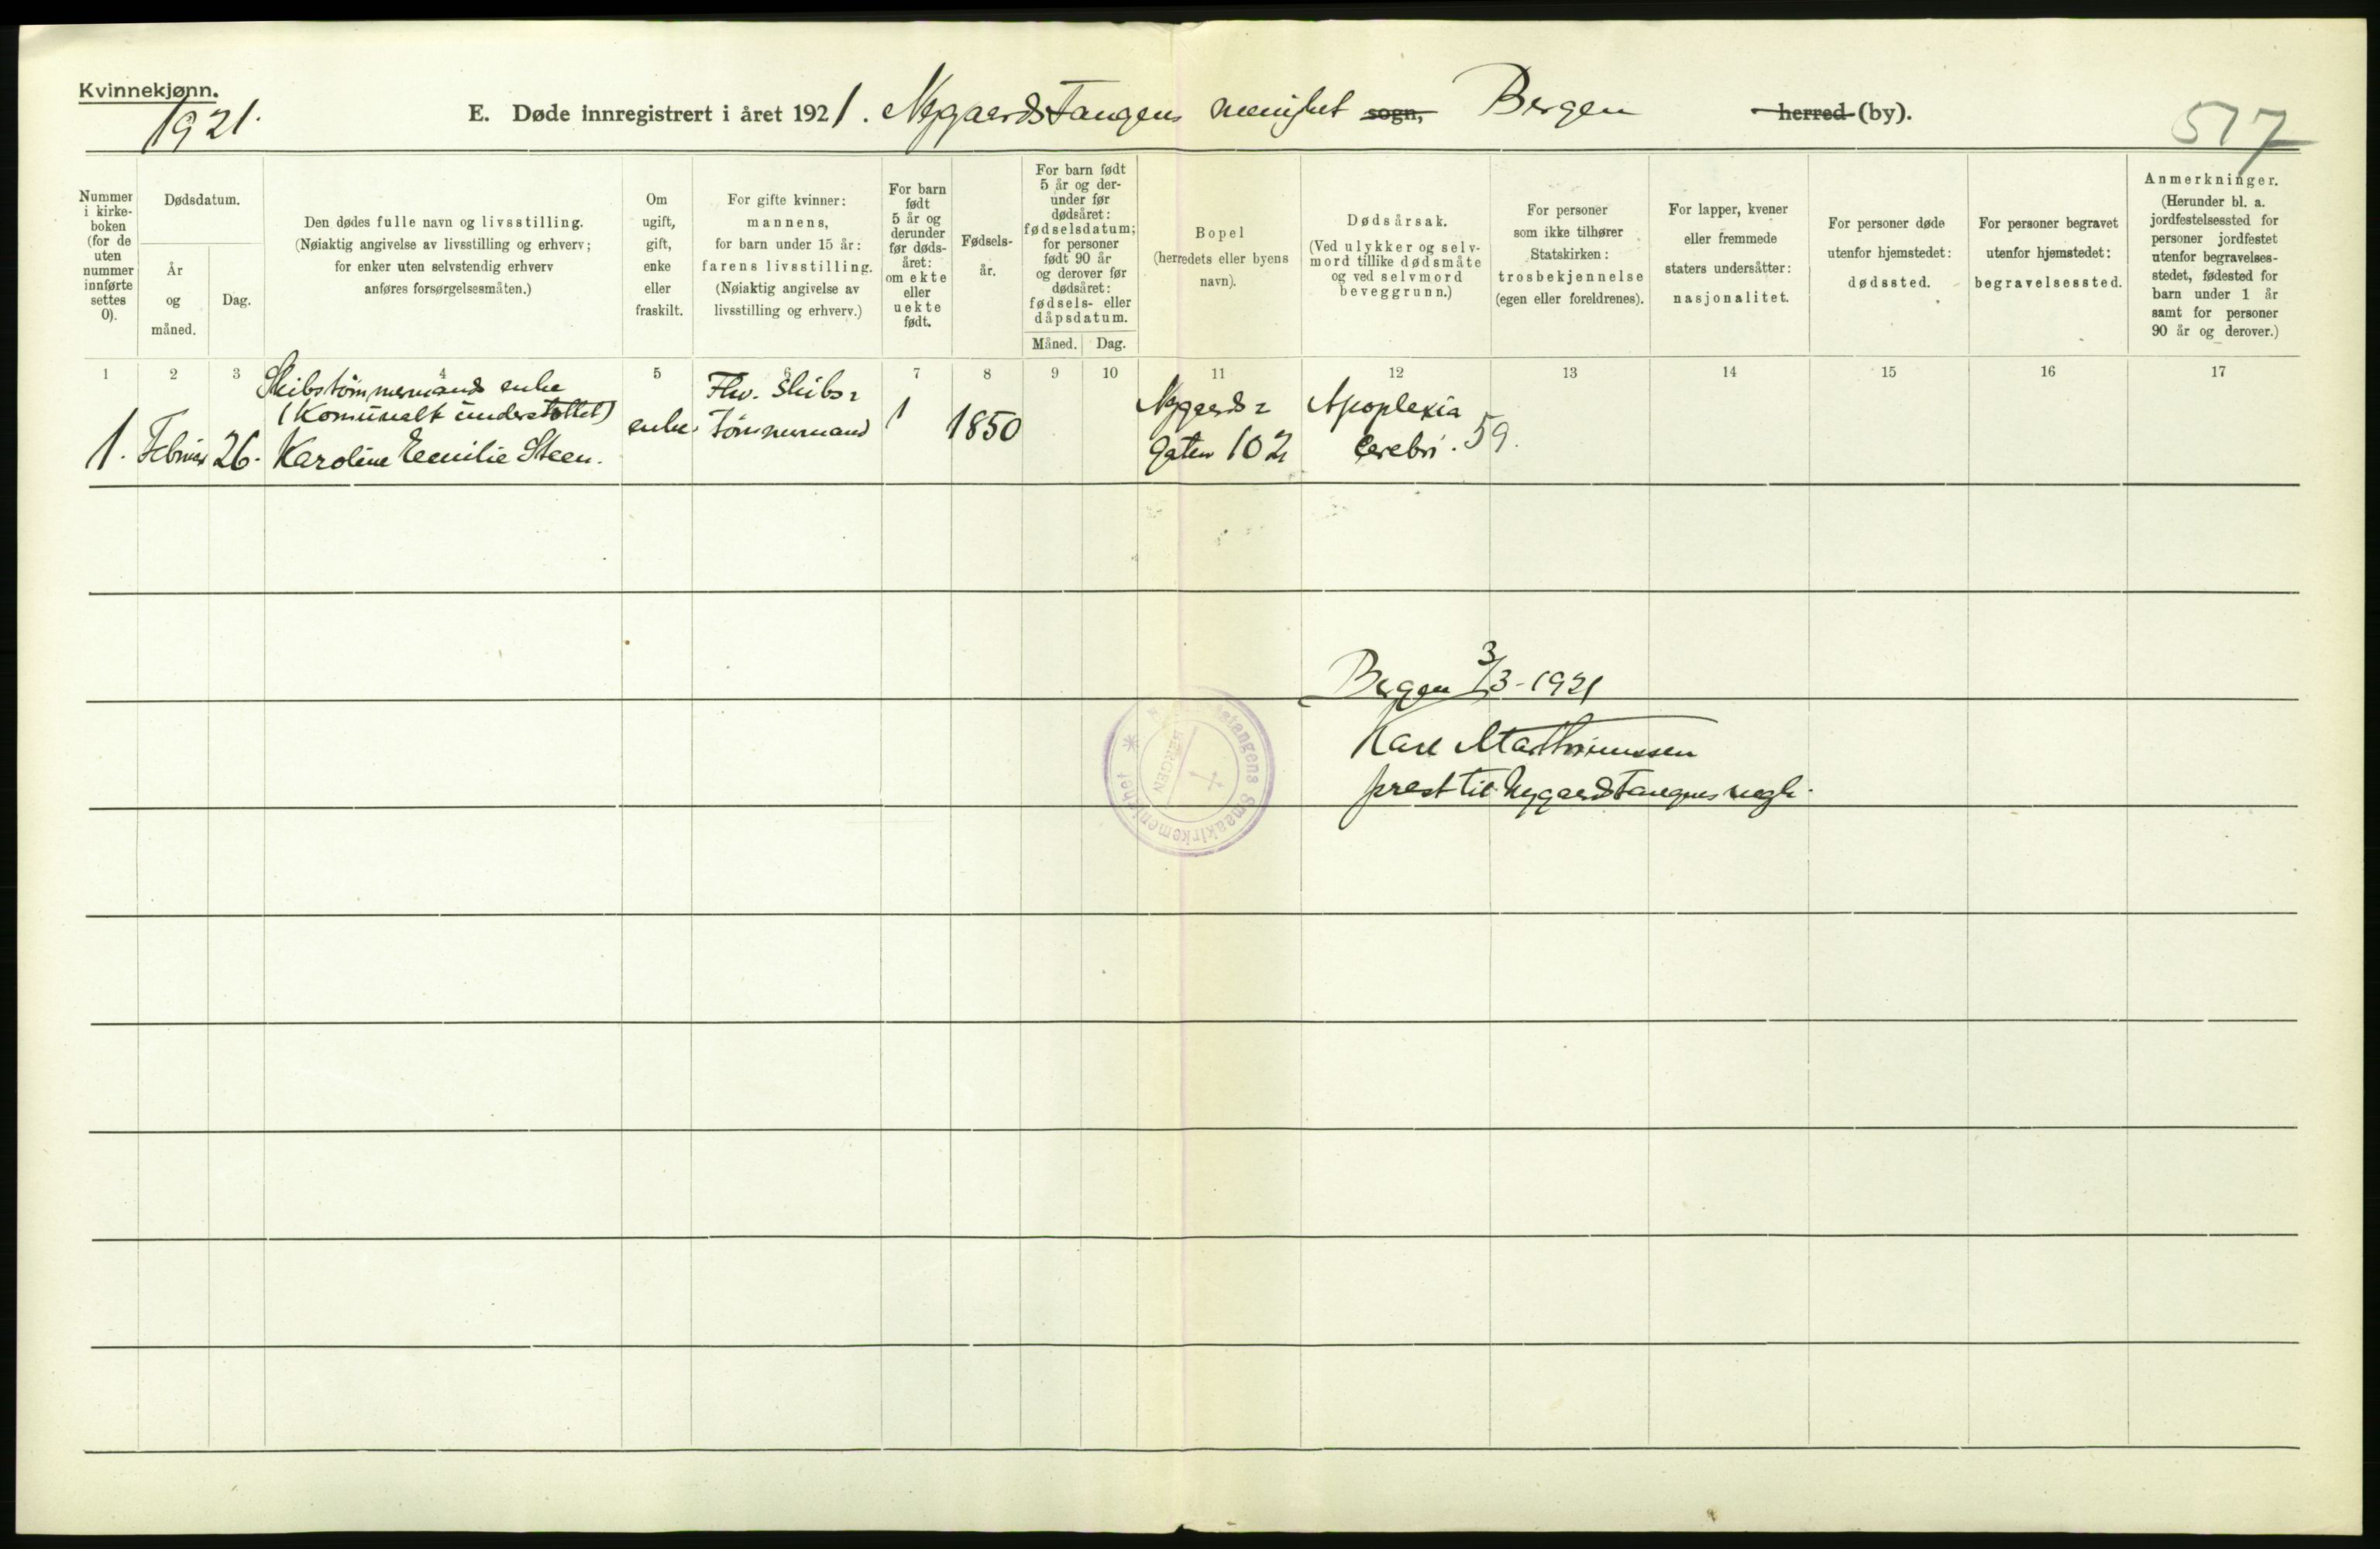 Kvinnekjønn.
1921.
E. Døde innregistrert i året 1921. Nygaardstangens menighet sogn, Bergen herred (by).
517
Nummer i kirke-boken (for de uten nummer innførte settes 0).
Dødsdatum.
År og måned.
Dag.
Den dødes fulle navn og livsstilling.
(Nøiaktig angivelse av livsstilling og erhverv;
for enker uten selvstendig erhverv
anføres forsørgelsesmåten.)
Om
ugift,
gift,
enke
eller
fraskilt.
For gifte kvinner:
mannens,
for barn under 15 år:
farens livsstilling.
(Nøiaktig angivelse av
livsstilling og erhverv.)
For barn
født
5 år og
derunder
før døds-
året:
om ekte
eller
uekte
født.
Fødsels-
år.
For barn født
5 år og der-
under før
dødsåret:
fødselsdatum;
for personer
født 90 år
og derover før
dødsåret:
fødsels- eller
dåpsdatum.
Måned.
Dag.
Bopel
(herredets eller byens
navn).
Dødsårsak.
(Ved ulykker og selv-
mord tillike dødsmåte
og ved selvmord
beveggrunn.)
For personer
som ikke tilhører
Statskirken:
trosbekjennelse
(egen eller foreldrenes).
For lapper, kvener
eller fremmede
staters undersåtter:
nasjonalitet.
For personer døde
utenfor hjemstedet:
dødssted.
For personer begravet
utenfor hjemstedet:
begravelsessted.
Anmerkninger.
(Herunder bl. a.
jordfestelsessted for
personer jordfestet
utenfor begravelses-
stedet, fødested for
barn under 1 år
samt for personer
90 år og derover.)
1 2 3 4 5 6 7 8 9 10 11 12 13 14 15 16 17
1.
Februar
26.
Skibstømmermands enke
(Komunalt understøttet)
Karoline Emilie Steen.
enke.
Fhv. Skibs-
tømmermand
1
1850
Nygaards-
gaten 102
Apoplexia
cerebri. 59.
Bergen 3/3-1921
Karl Marthinussen
prest til Nygaardstangens megh.
Smaakirkemenighet
BERGEN